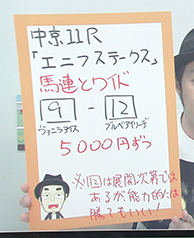 中京11R
「エニフステークス」
馬連とワイド
9 - 12
ヴァニラアイス ブルベアイリーデ
5000円ずつ
※12は展開次第では
あるが能力的には
勝てもいい!